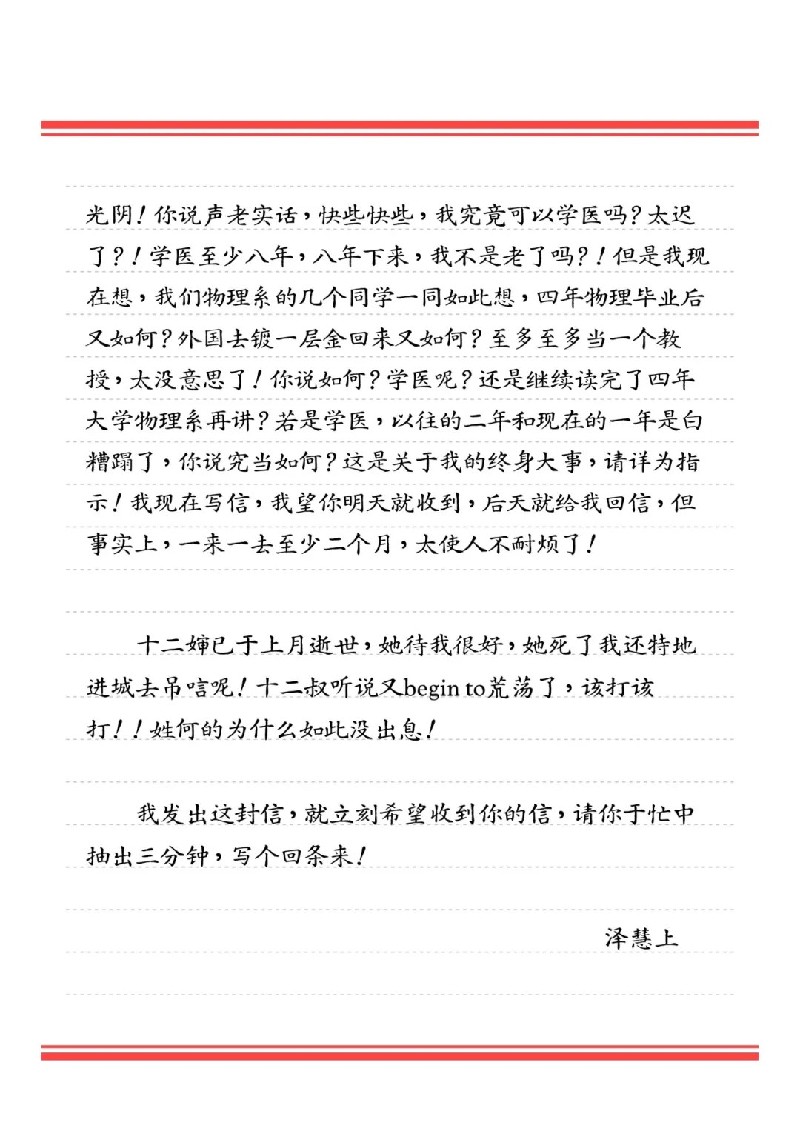 光阴！你说声老实话，快些快些，我究竟可以学医吗？太迟
了？！学医至少八年，八年下来，我不是老了吗？！但是我现
在想，我们物理系的几个同学一同如此想，四年物理毕业后
又如何？外国去镀一层金回来又如何？至多至多当一个教
授，太没意思了！你说如何？学医呢？还是继续读完了四年
大学物理系再讲？若是学医，以往的二年和现在的一年是白
糟蹋了，你说究当如何？这是关于我的终身大事，请详为指
示！我现在写信，我望你明天就收到，后天就给我回信，但
事实上，一来一去至少二个月，太使人不耐烦了！
十二婶已于上月逝世，她待我很好，她死了我还特地
进城去吊唁呢！十二叔听说又begin to荒荡了，该打该
打！！姓何的为什么如此没出息！
我发出这封信，就立刻希望收到你的信，请你于忙中
抽出三分钟，写个回条来！
泽慧上